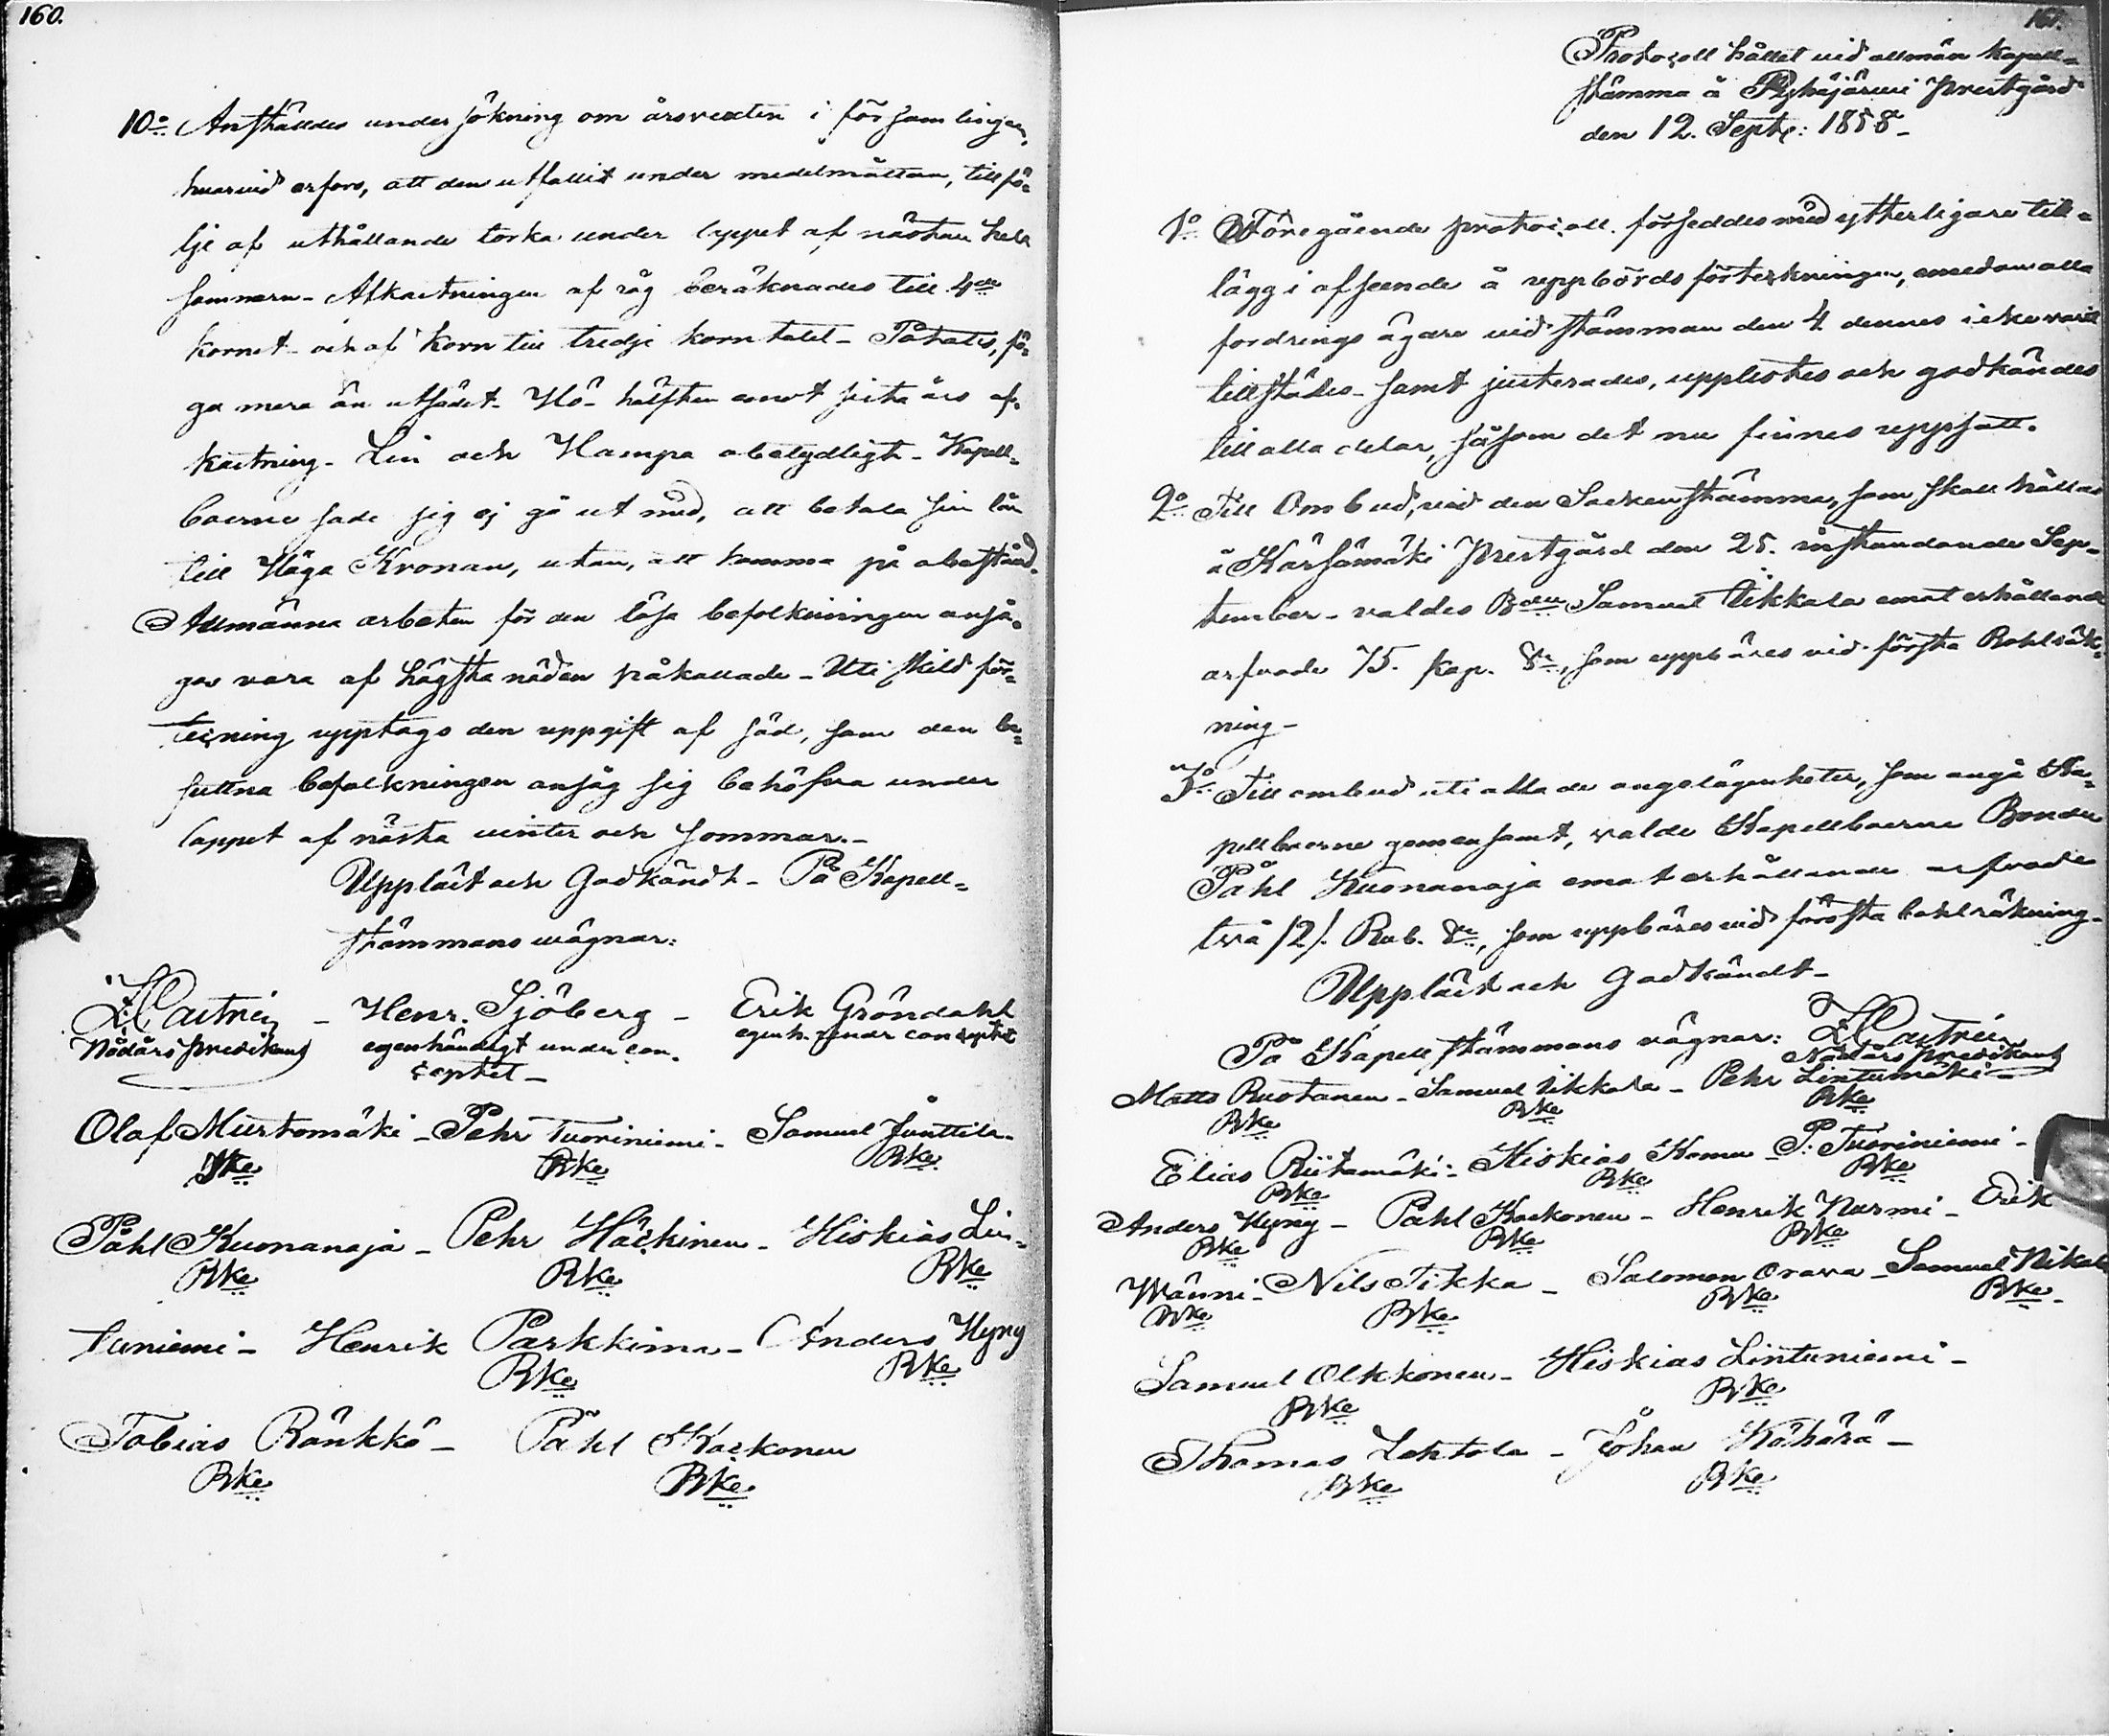 160.
10:o Anställdes undersökning om årsvexten i församlingen,
hvarvid erfors, att den utfallit under medelmåttan, tillfö-
lje af uthållande torka under loppet af nästan hela
sommarn - Afkastningen af råg beräknades till 4:de
kornet - och af korn till tredje korntalet - Potates, fö-
ga mera än utsädet - Hö - hälften emot sista års af-
kastning - Lin och Hampa obetydligt - Kapell-
boerne sade sig ej gå ut med, att betala sin lån
till Höga Kronan, utan, att komma på obestånd.
Allmänna arbeten för den lösa befolkningen anså-
gos vara af högsta nöden påkallade - Uti skild för-
teckning upptogs den uppgift af säd, som den be-
suttna befolkningen ansåg sig behöfva under
loppet af nästa vinter och sommar. -
Uppläst och Godkändt - På Kapell-
stämmans vägnar:
Z Castrén - Henr. Sjöberg - Erik Gröndahl
Nödårs predikant egenhändigt under con- egenh. under conceptet
ceptet -
Olaf Murtomäki - Pehr Tuoriniemi - Samuel Junttila -
Bke Bke Bke
Påhl Kuonanoja - Pehr Häckinen - Hiskias Lin-
Bke Bke Bke
tuniemi - Henrik Parkkima - Anders Hyny
Bke Bke
Tobias Ränkkö - Påhl Kockonen
Bke Bke
161.
Protocoll hållet vid allmän kapell-
stämma å Pyhäjärvi prestgård
den 12. Septe: 1858 -
1:o Föregående protocoll försedes med ytterligare till-
lägg i afseende å uppbördsförteckningen, emedan alla
fordringsägare vid stämman den 4 dennes icke varit
tillstädes - samt justerades, upplästes och godkändes
till alla delar, såsom det nu finnes uppsatt.
2:o Till Ombud, vid den Sockenstämma, som skall hållas
å Kärsämäki prestgård den 25. instundande Sep-
tember - valdes B:den Samuel Tikkala emot erhållande
arfvode 75. kop. S:r, som uppbäres vid första Bohlräk-
ning -
3:o Till ombud uti alla de angelägenheter, som angå Ka-
pellboerne gemensamt, valde Kapellboerne Bonden
Påhl Kuonanoja emot erhållande arfvode
två /2/. Rub. S:r, som uppbäres vid första bohlräkning -
Uppläst och Godkändt -
På Kapellstämmans vägnar: Z Castrén
Nödårs predikant
Matts Ruotanen - Samuel Tikkala - Pehr Lintumäki -
Bke Bke Bke
Elias Riitamäki - Hiskias Komu - P. Tuoriniemi -
Bke Bke Bke
Anders Hyny - Påhl Kockonen - Henrik Nurmi - Erik
Bke Bke Bke
Wänni - Nils Tikka - Salomon Orava - Samuel Nikala
Bke Bke Bke Bke -
Samuel Olkkonen - Hiskias Lintuniemi -
Bke Bke
Thomas Lehtola - Johan Kähärä -
Bke Bke